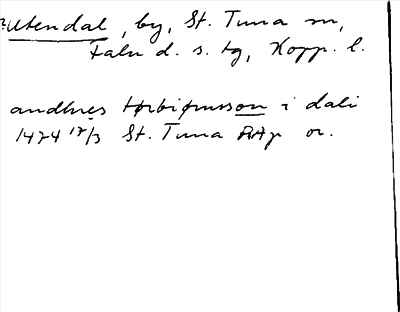 ?Utendal, by, St. Tuna sn,
Falu d. s. tg, Kopp. l.
andhres torbiørnsson i dali
1474 17/3 St. Tuna RAp or.